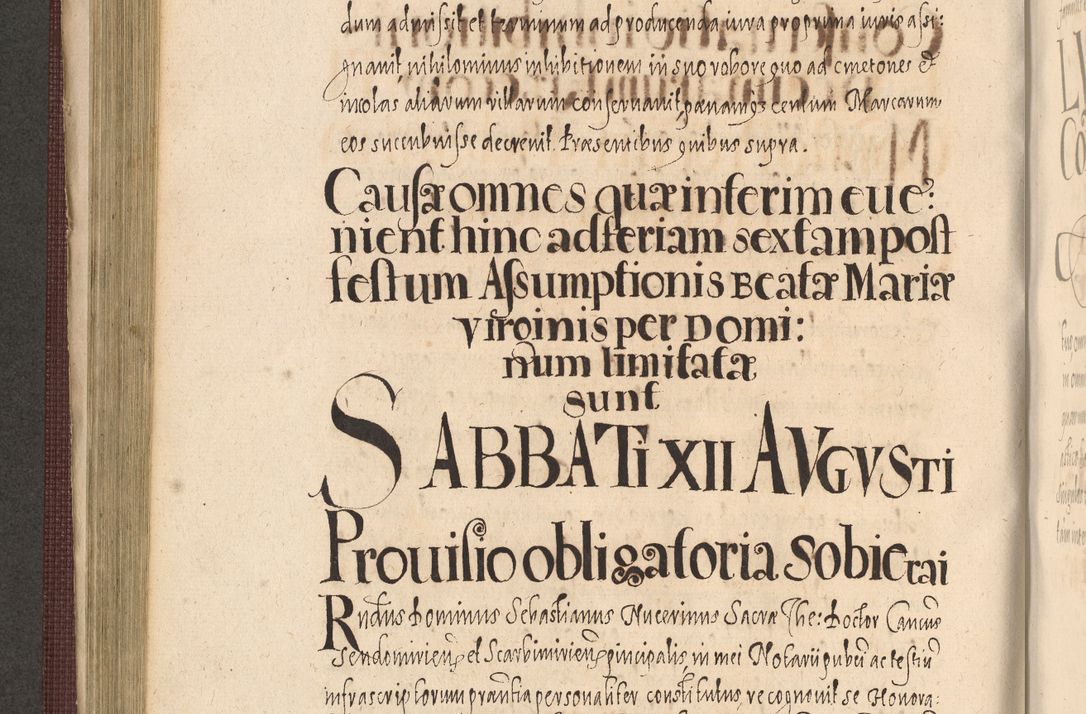 dum admissit et terminum ad producenda iura propruma iuris assi:
gnauit nihilominus inhibitionem in suo robore quo ad cmetones et
incolas aliarum villarum conseruauit, pœnamqz centum Marcarum
eos succubuisse decreuit. Præsentibus quibus supra.
Causæ omnes quæ interim eue:
nient hinc ad feriam sextam post
festum Assumptionis Beatæ Mariæ
Virginis per Domi:
num limitatæ
sunt
SABBATi XII AVGVSTi
Prouisio obligatoria Sobierai
Rndus Dominus Sebastianus Nucerinus Sacræ The: Doctor Cancus
Sendomirien et Scarbimirien principalis, in mei Notarii pubci ac testiu
infrascriptorum præntia personaliter constitutus, recognouit se Honora: